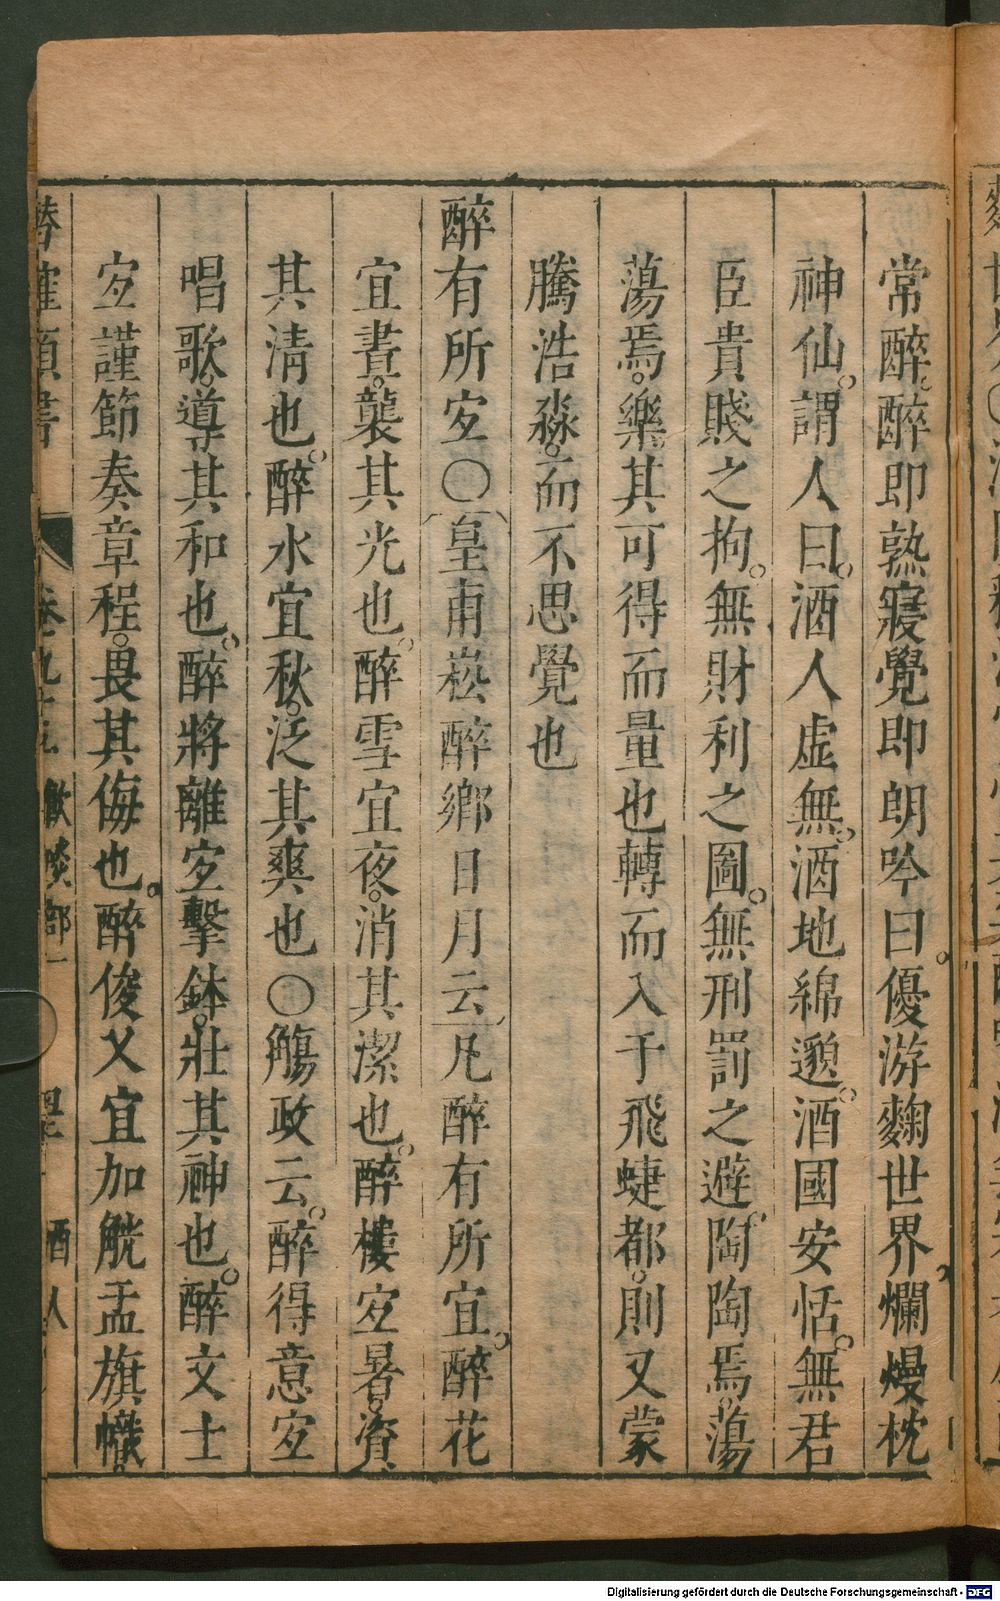 常醉。醉即熟寢覺即朗吟曰。優游麴世界爛熳枕
神仙。謂人曰。酒人虚無。酒地綿邈。酒國安恬。無君
臣貴賤之拘。無財利之圖。無刑罰之避。陶陶焉。蕩
蕩焉。樂其可得而量也轉而入于飛蜨都。則又蒙
騰浩淼。而不思覺也
醉有所宐〇皇甫崧醉鄉日月云凡醉有所宜。醉花
宜晝。襲其光也。醉雪宜夜。消其潔也。醉樓宐暑。資
其清也。醉水宜秋。泛其爽也〇觴政云。醉得意宐
唱歌。導其和也。醉將離宐擊鉢。壯其神也。醉文士
宐謹節奏章程。畏其侮也。醉俊乂宜加觥盂旗幟。
卷九十九 飲啖部一 酒人
Digitalisierung gefördert durch die Deutsche Forschungsgemeinschaft - DFG